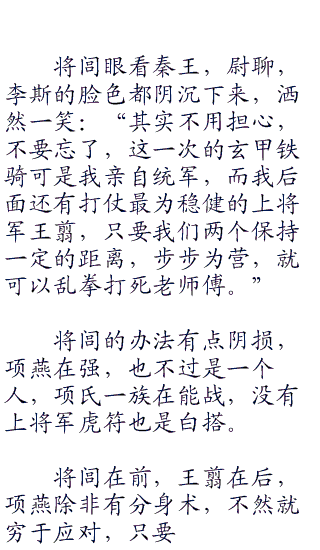 将闾眼看秦王，尉聊，
李斯的脸色都阴沉下来，洒
然一笑：“其实不用担心，
不要忘了，这一次的玄甲铁
骑可是我亲自统军，而我后
面还有打仗最为稳健的上将
军王翦，只要我们两个保持
一定的距离，步步为营，就
可以乱拳打死老师傅。”
将闾的办法有点阴损，
项燕在强，也不过是一个
人，项氏一族在能战，没有
上将军虎符也是白搭。
将闾在前，王翦在后，
项燕除非有分身术，不然就
穷于应对，只要